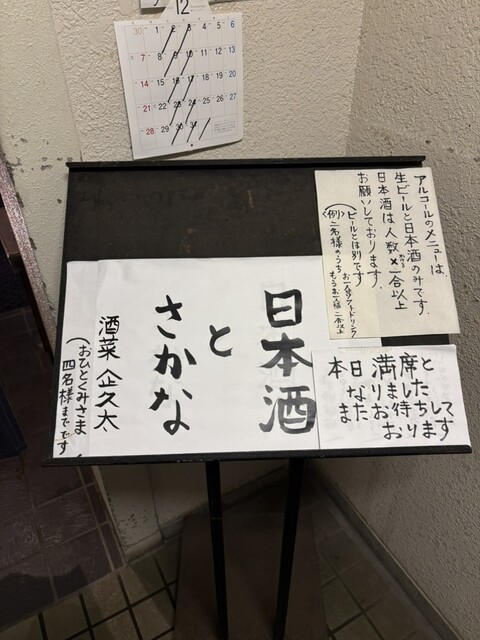 12
30 1 2 3 4 5 6
7 8 9 10 11 12 13
14 15 16 17 18 19 20
21 22 23 24 25 26 27
28 29 30 31
アルコールのメニューは、
生ビールと日本酒のみです。
日本酒は人数×一合以上
お願いしております。
(ビールとは別です
(例)二名様のうち お一人ソフトドリンク
もうお一人様 二合以上
日本酒
と
さかな
酒菜 企久太
(おひとくみさま
四名様までです
本日 満席と
なりました
またお待ちして
おります